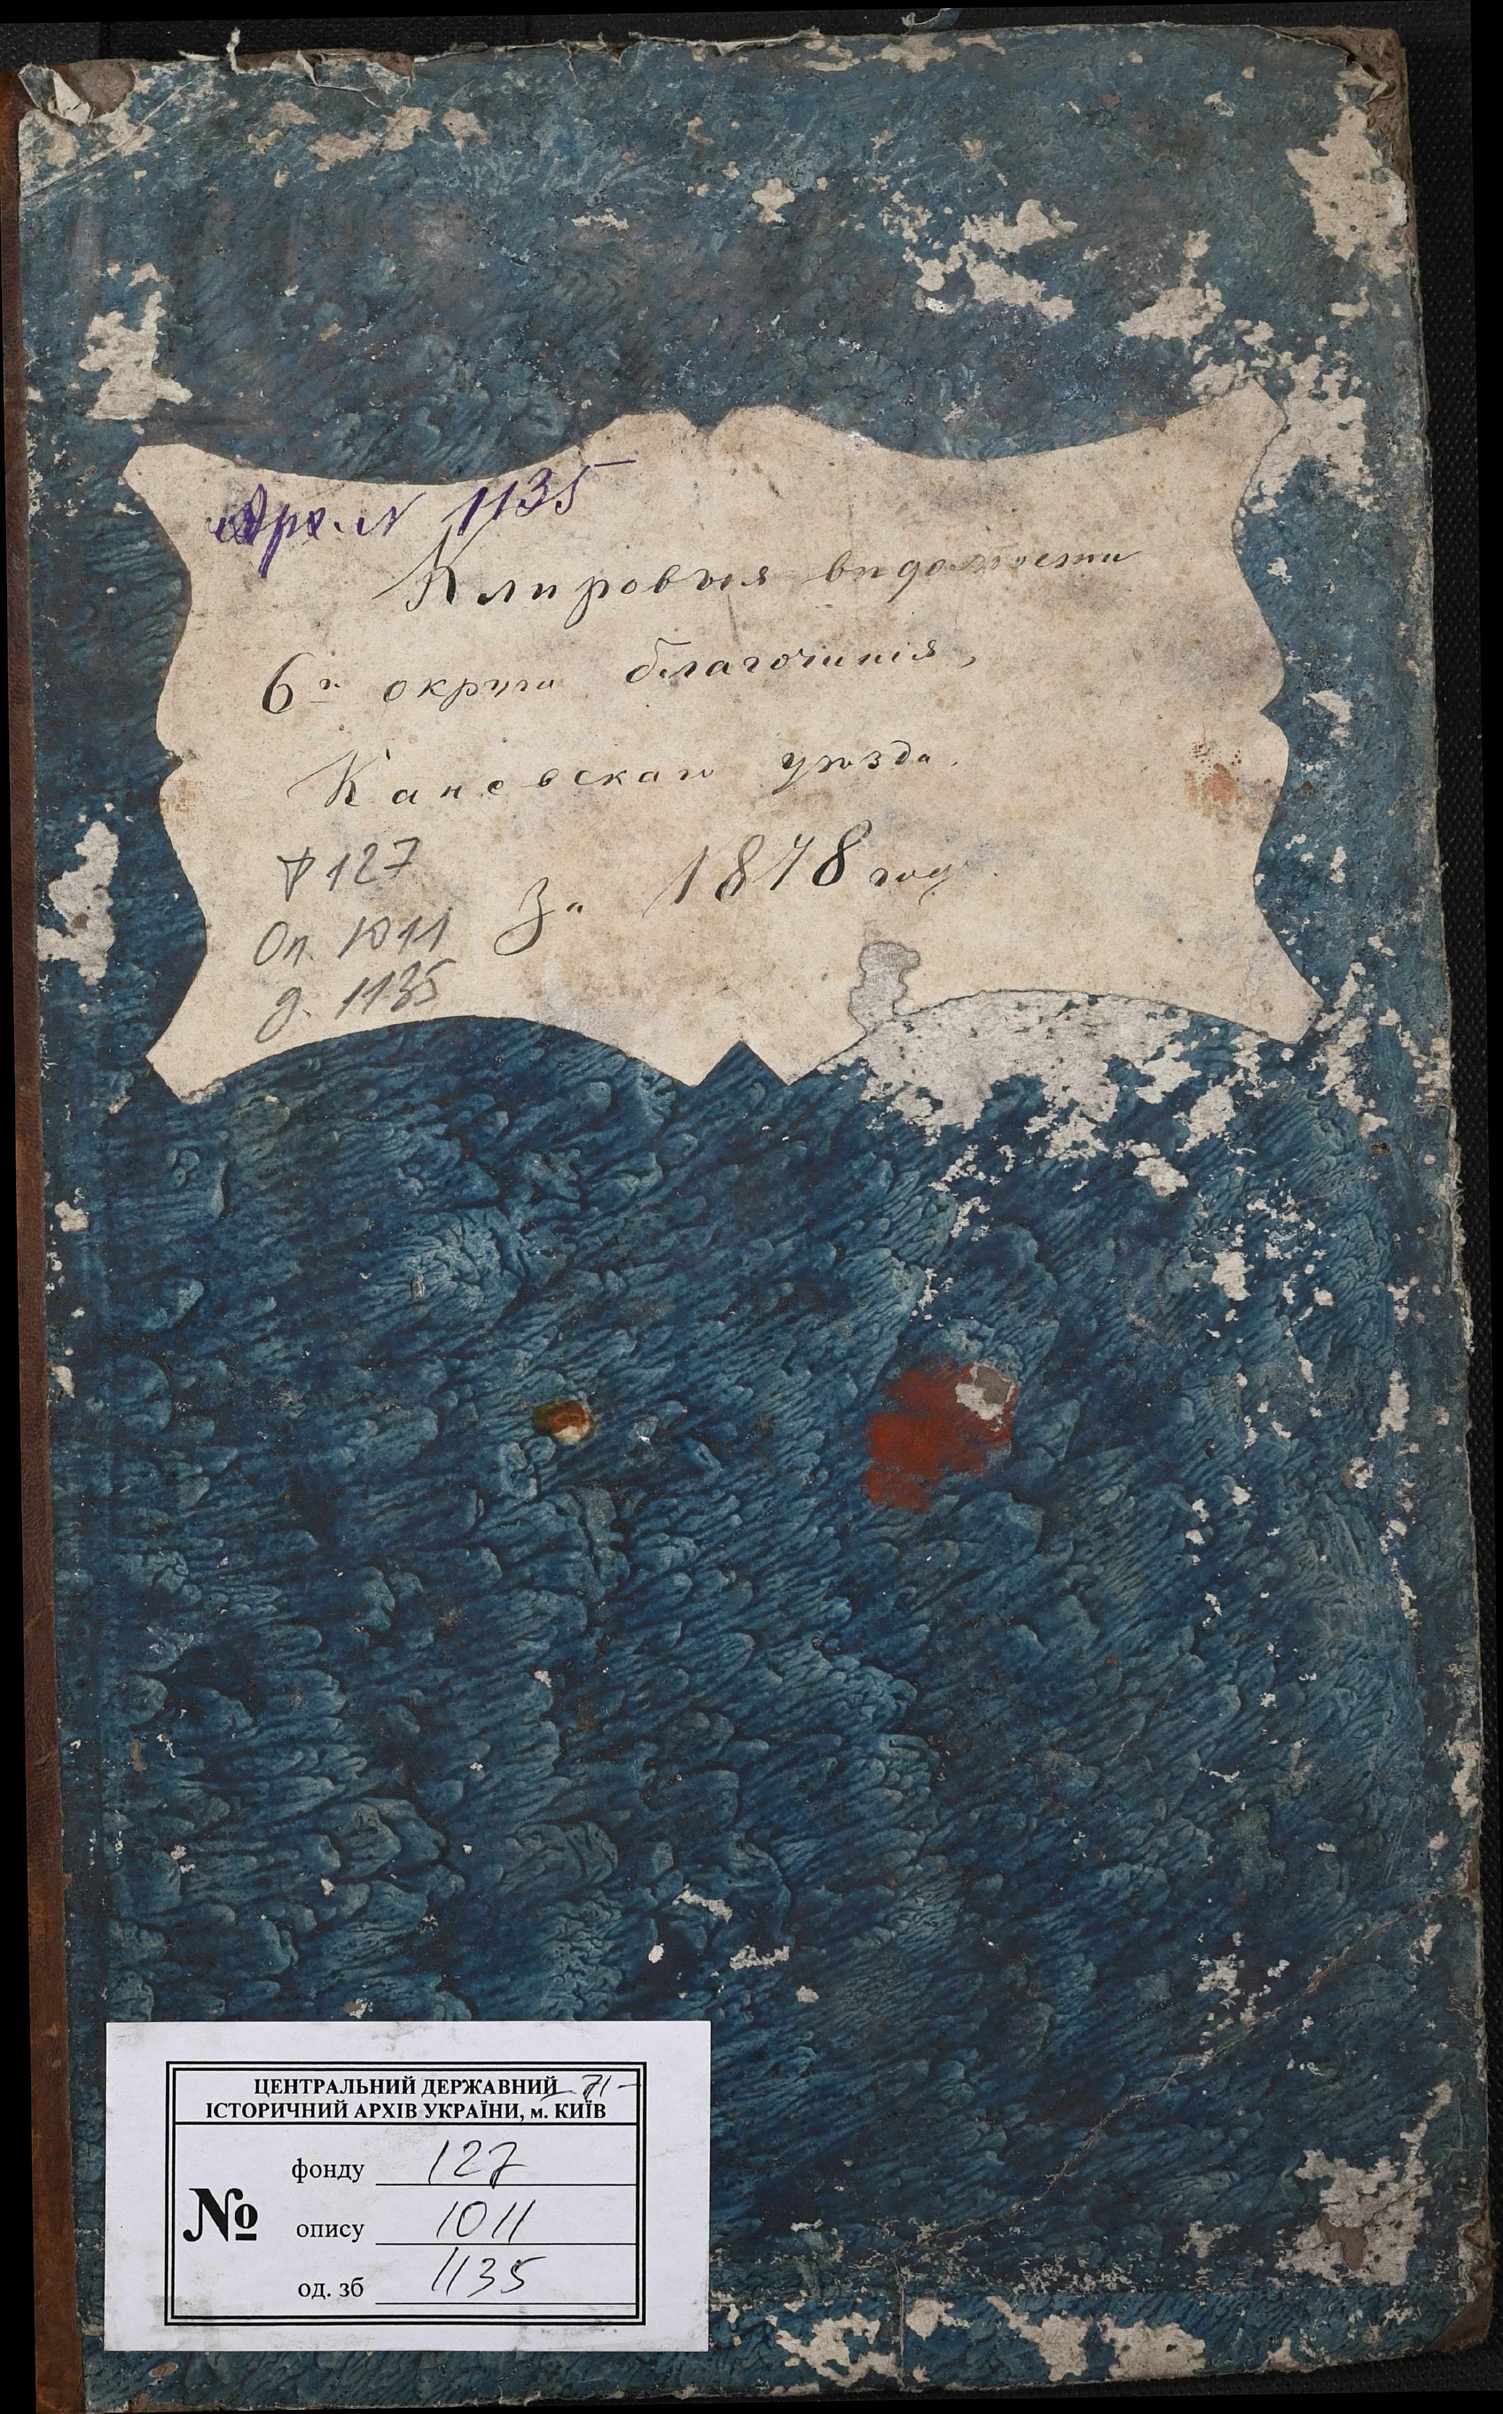 Арх. № 1135
Клировыя вѣдомости
6го округа благочинія,
Каневскаго уѣзда.
За 1878 год
Ф 127
Оп. 1011
д. 1135
ЦЕНТРАЛЬНИЙ ДЕРЖАВНИЙ
ІСТОРИЧНИЙ АРХІВ УКРАЇНИ, м. КИЇВ
№
фонду 127
опису 1011
од. зб 1135